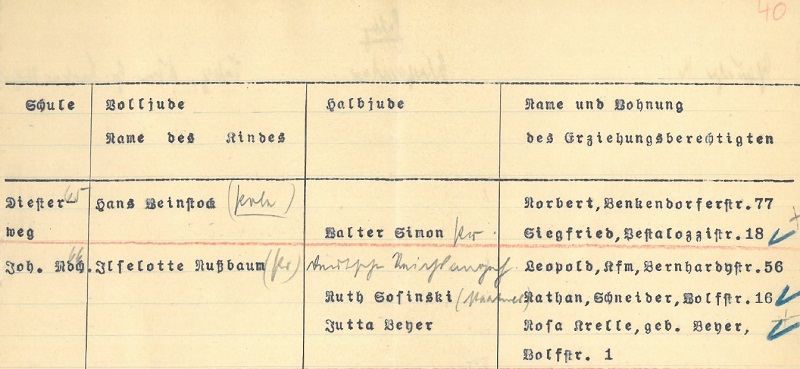 40
Schule Volljude Halbjude Name und Wohnung
Name des Kindes des Erziehungsberechtigten
Diester- Hans Weinstock Norbert, Benkendorferstr. 77
weg Walter Simon Siegfried, Pestalozzistr. 18
Joh. Ilselotte Nußbaum Leopold, Kfm, Bernhardystr. 56
Ruth Sosinski Nathan, Schneider, Wolfstr. 16
Jutta Beyer Rosa Krelle, geb. Beyer,
Wolfstr. 1